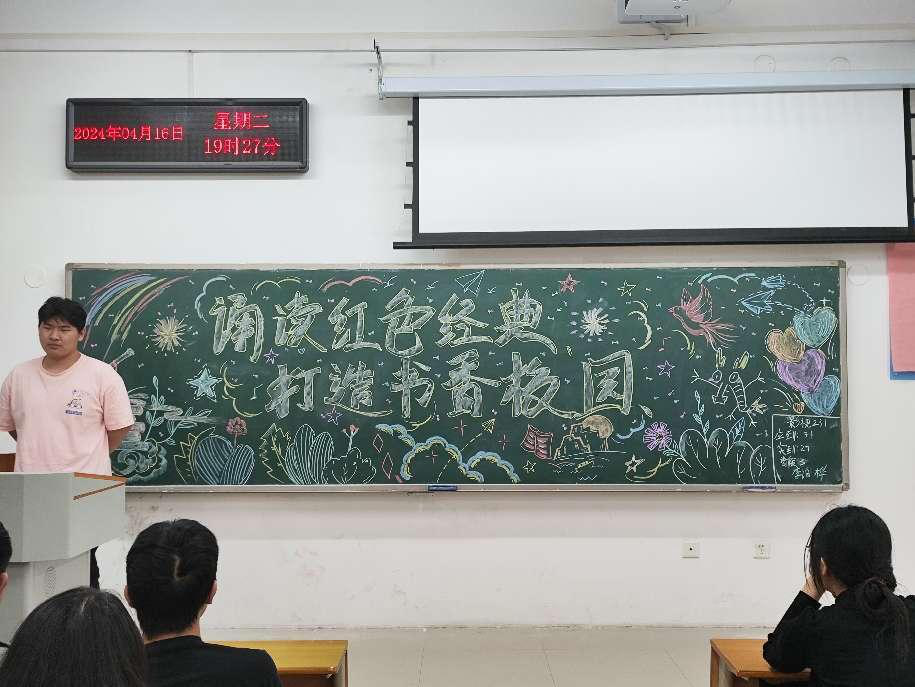 2024年04月16日
星期二
19时27分
诵读红色经典
打造书香板园